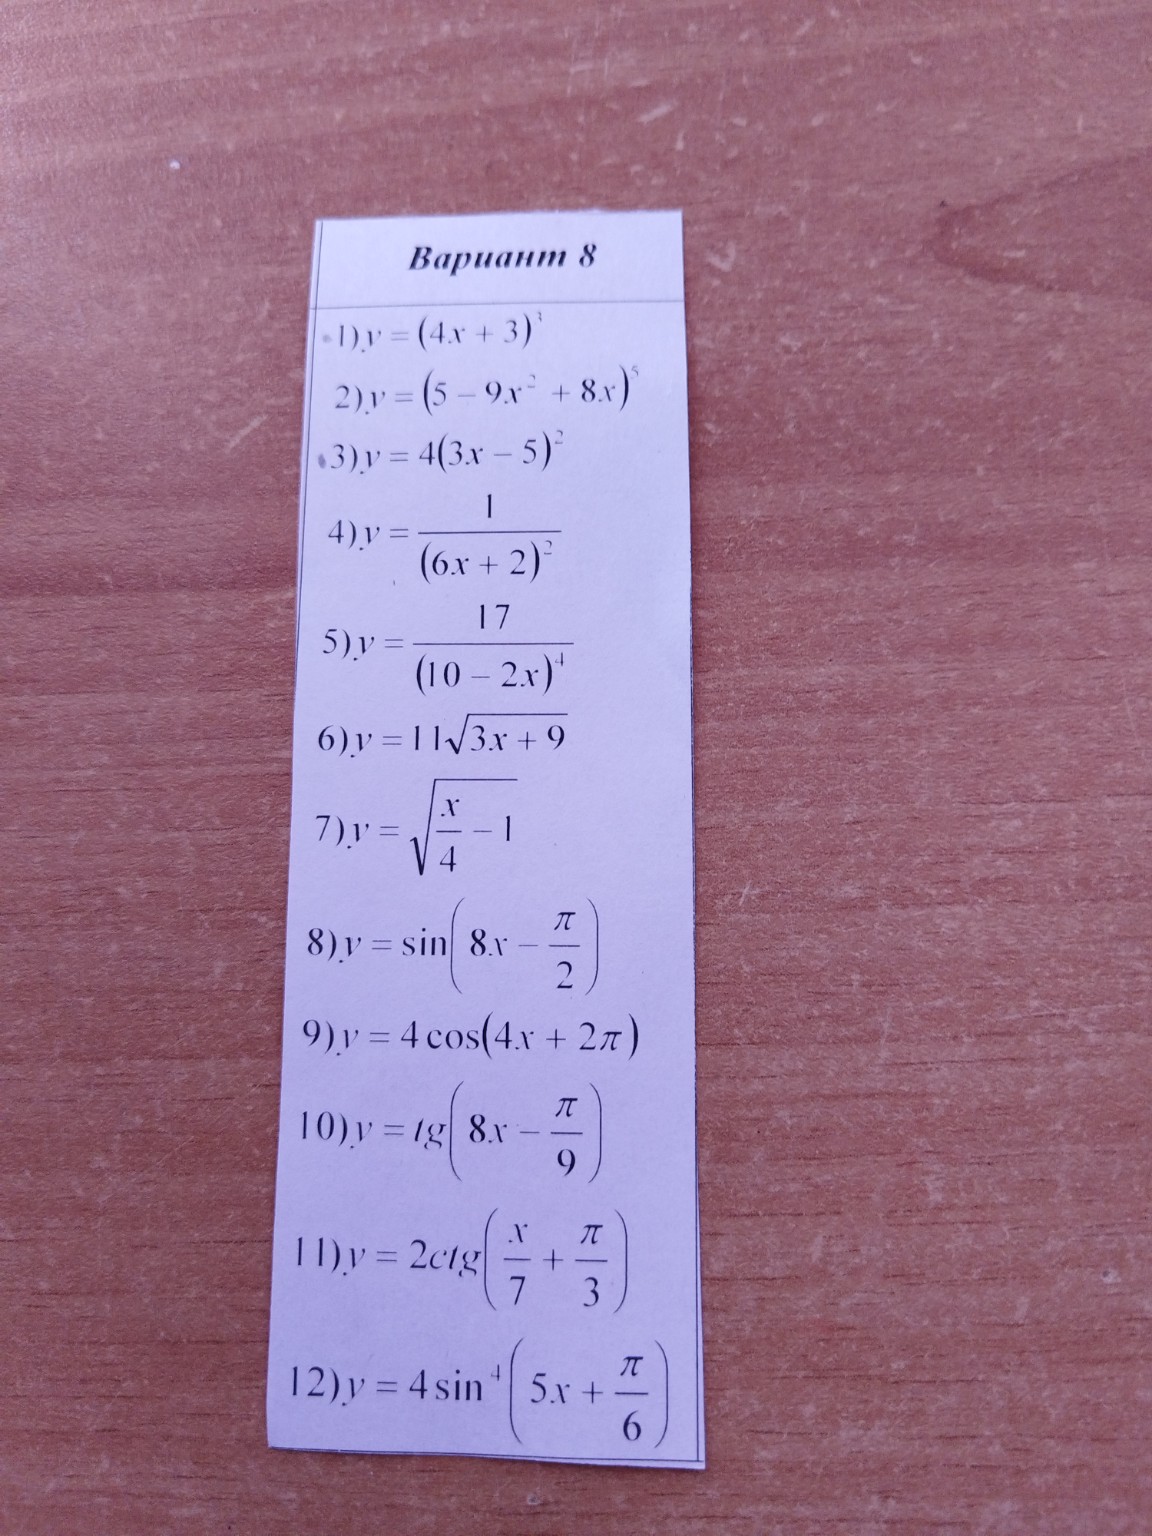 Вариант 8
1) y = (4x + 3)³
2) y = (5 − 9x² + 8x)⁵
3) y = 4(3x − 5)²
4) y = 1/(6x + 2)²
5) y = 17/(10 − 2x)⁴
6) y = 11√(3x + 9)
7) y = √(x/4 − 1)
8) y = sin(8x − π/2)
9) y = 4 cos(4x + 2π)
10) y = tg(8x − π/9)
11) y = 2ctg(x/7 + π/3)
12) y = 4 sin⁴(5x + π/6)